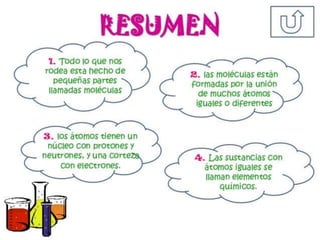 RESUMEN
1. Todo lo que nos
rodea esta hecho de
pequeñas partes
llamadas moléculas
2. las moléculas están
formadas por la unión
de muchos átomos
iguales o diferentes
3. los átomos tienen un
núcleo con protones y
neutrones, y una corteza
con electrones.
4. Las sustancias con
átomos iguales se
llaman elementos
químicos.